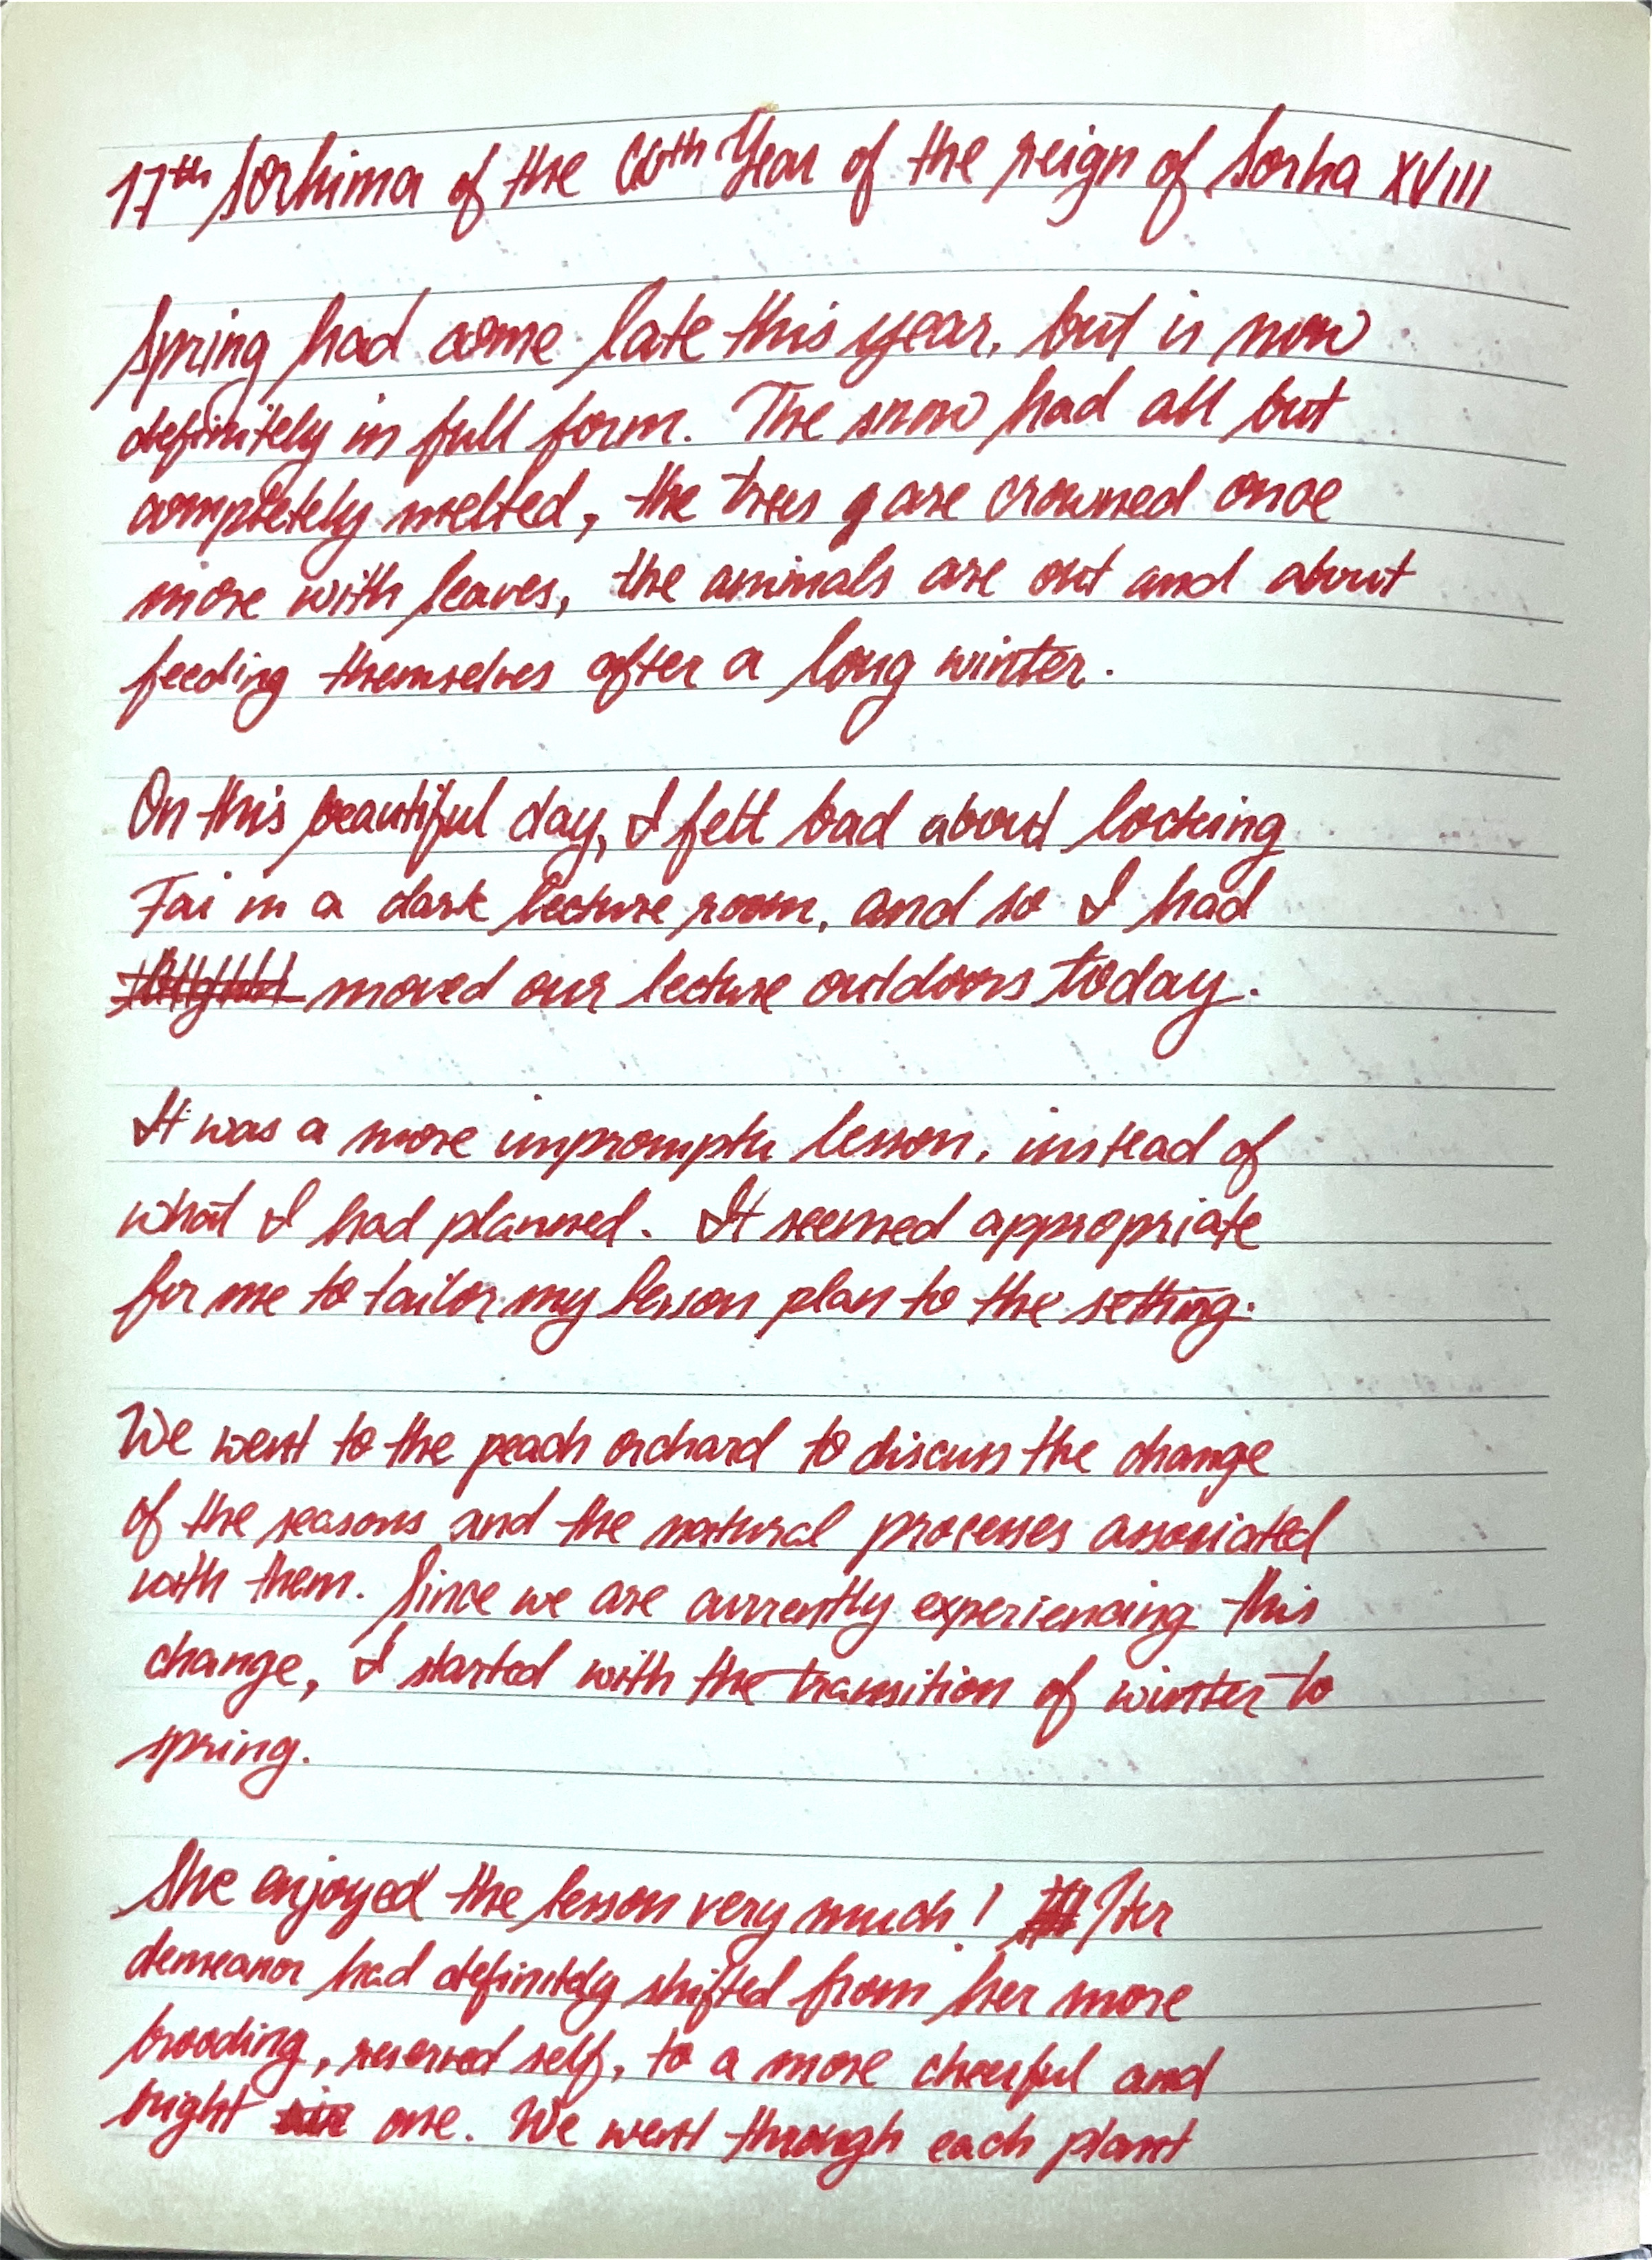 17th Sorhima of the 60th Year of the reign of Sorha XVIII
Spring had come late this year, but is now
definitely in full form. The snow had all but
completely melted, the trees are crowned once
more with leaves, the animals are out and about
feeding themselves after a long winter.
On this beautiful day, I felt bad about locking
Fai in a dark lecture room, and so I had
moved our lecture outdoors today.
It was a more impromptu lesson, instead of
what I had planned. It seemed appropriate
for me to tailor my lesson plan to the setting.
We went to the peach orchard to discuss the change
of the seasons and the natural processes associated
with them. Since we are currently experiencing this
change, I started with the transition of winter to
spring.
She enjoyed the lesson very much! Her
demeanor had definitely shifted from her more
brooding, reserved self, to a more cheerful and
bright one. We went through each plant